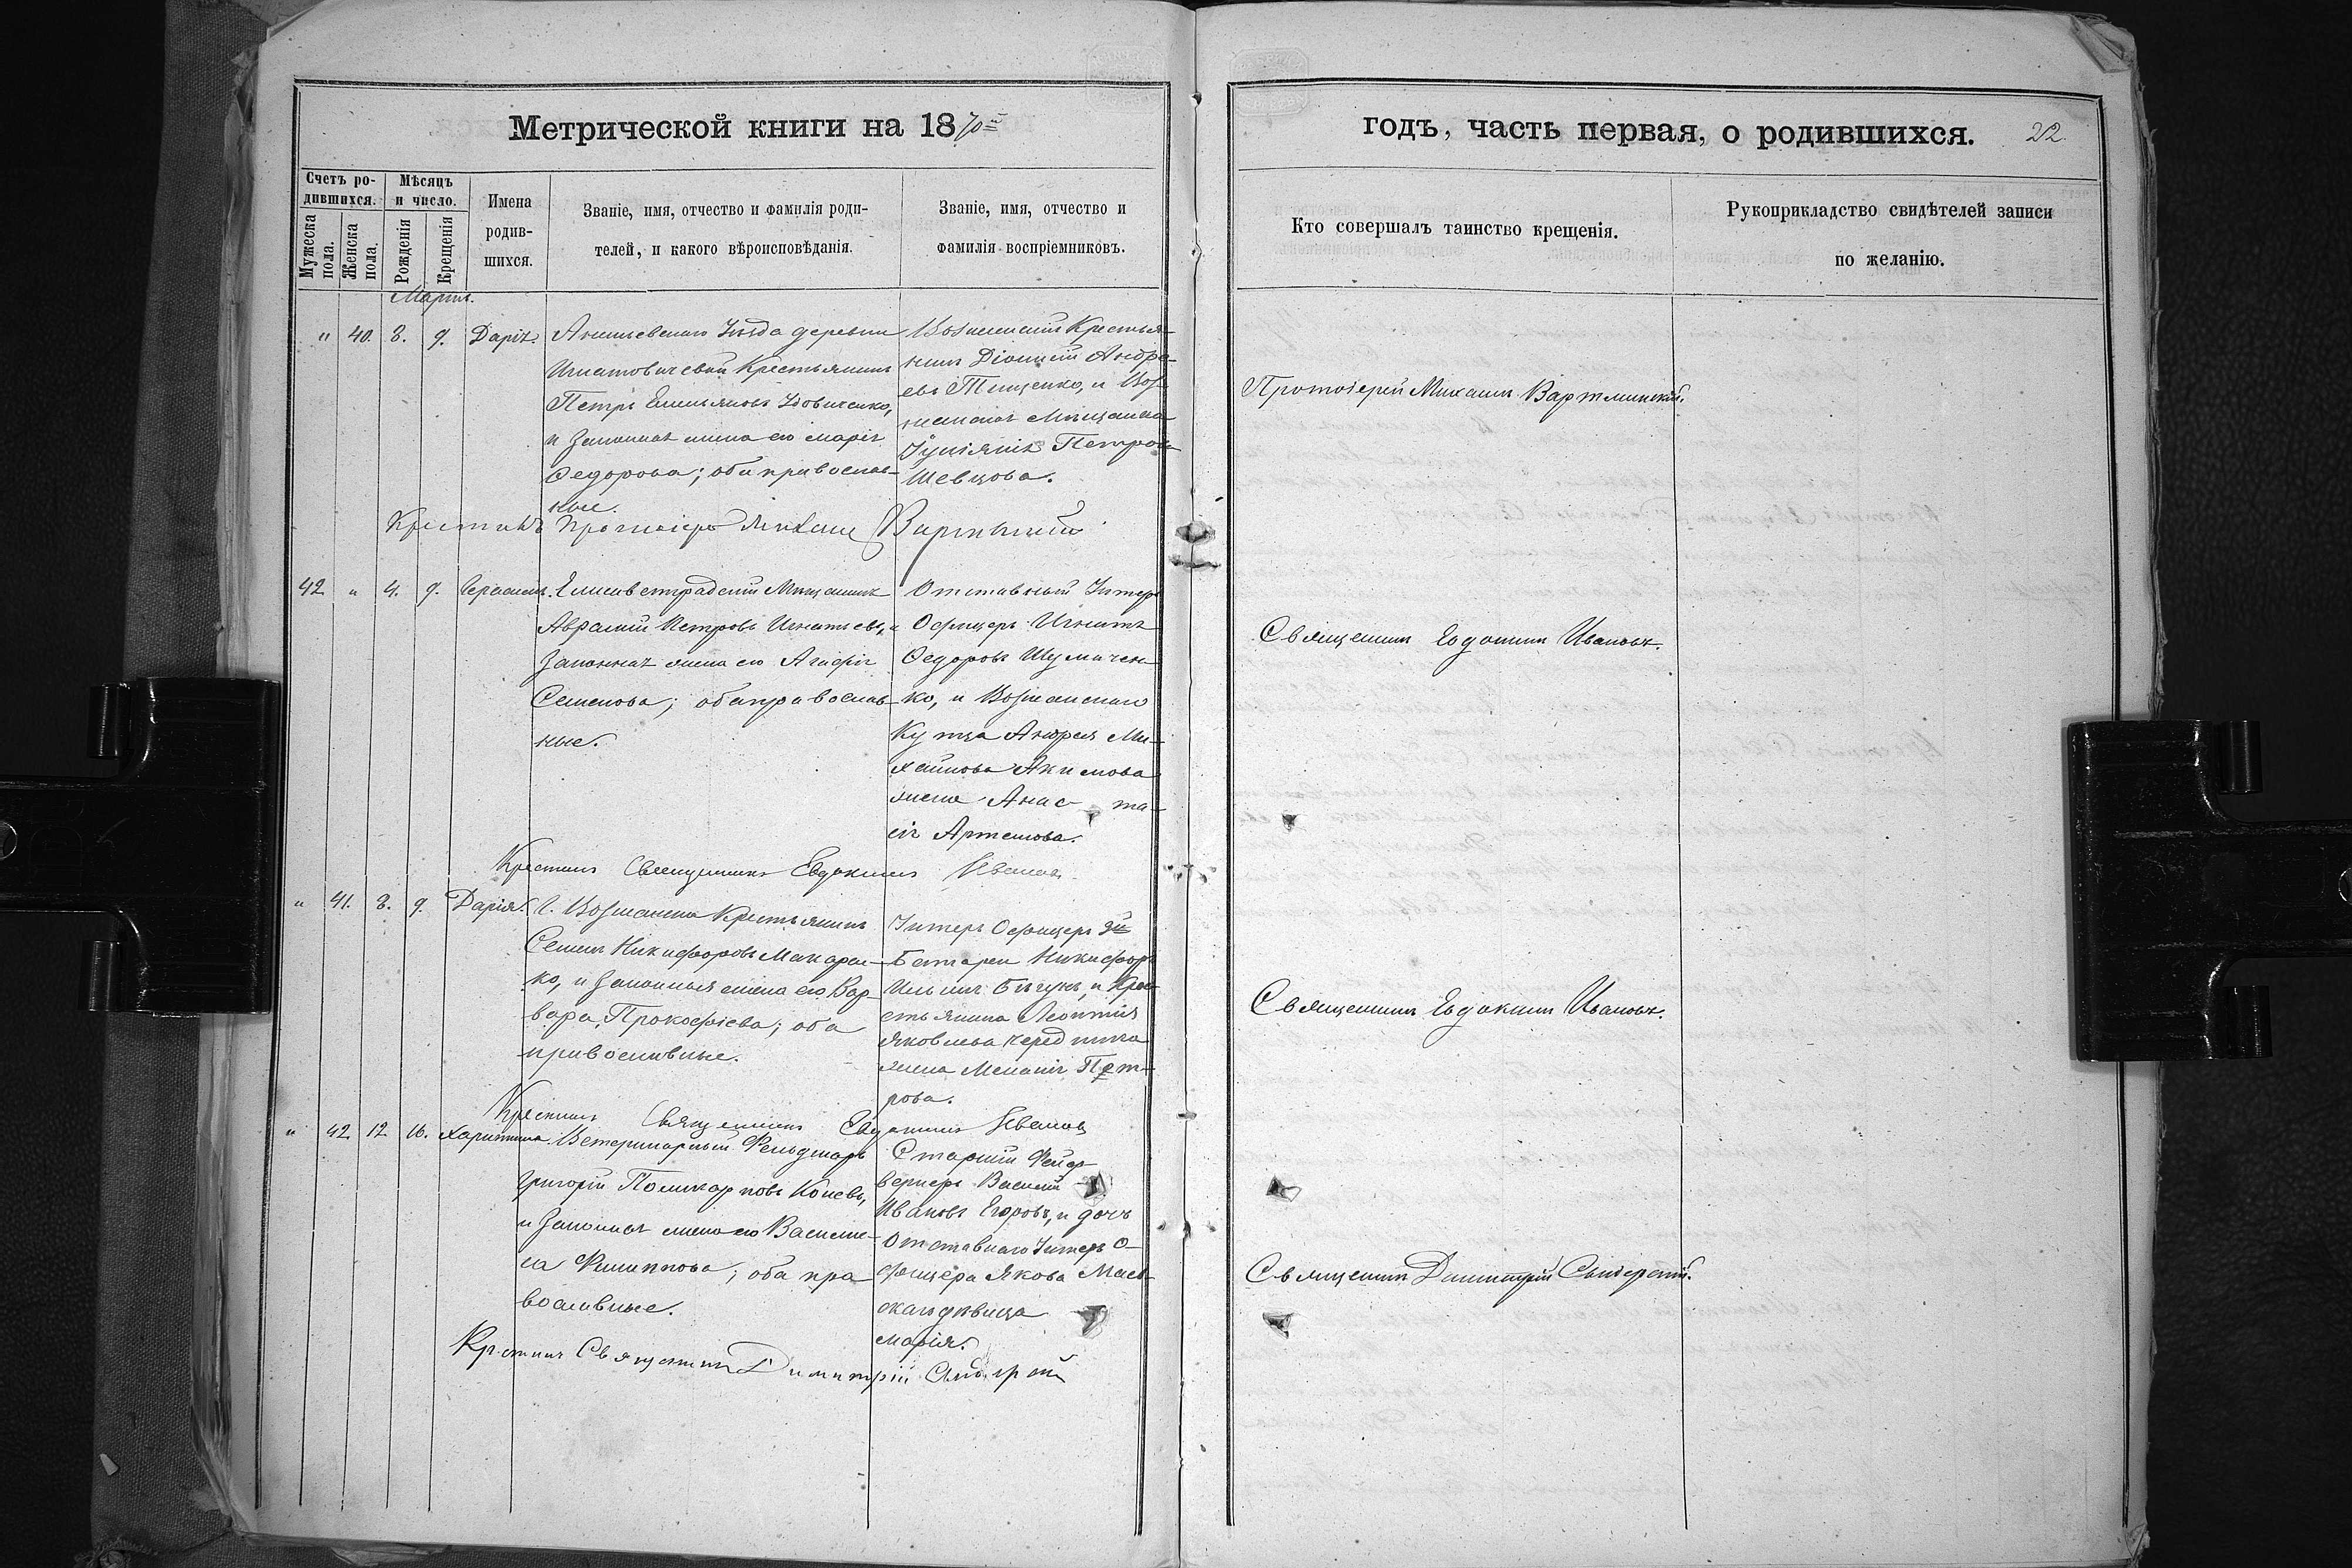 Метрической книги на 1870й
годъ, часть первая, о родившихся. 212
Счетъ родившихся.
Мужеска пола.
Женска пола.
Мѣсяцъ и число.
Рожденія
Крещенія
Имена родившихся.
Званіе, имя, отчество и фамилія родителей, и какого вѣроисповѣданія.
Званіе, имя, отчество и фамилія воспріемниковъ.
Кто совершалъ таинство крещенія.
Рукоприкладство свидѣтелей записи по желанію.
Мартъ.
" 40. 8. 9. Дарія.
Ананьевскаго Уѣзда деревни
Игнатовичевой Крестьянинъ
Петръ Емельяновъ Удовиченко,
и законная жена его Марія
Федорова; оба православ-
ные.
Вознесенскій Крестья-
нинъ Діонисій Андре-
евъ Тищенко, и Воз-
несенская Мѣщанка
Іуліанія Петрова
Шевцова.
Протоіерей Михаилъ Вартминскій.
Крестилъ Протоіерей Михаилъ Вартминскій
42 " 4. 9. Герасимъ.
Елисаветградскій Мѣщанинъ
Аврамій Петровъ Игнатьевъ, и
законная жена его Агафія
Семенова; оба православ-
ные.
Отставной Унтеръ
Офицеръ Игнатъ
Федоровъ Шумичен-
ко, и Вознесенскаго
Купца Андрея Ми-
хайлова Акимова
жена Анас-та-
сія Артемова.
Священникъ Евдокимъ Ивановъ.
Крестилъ Священникъ Евдокимъ Ивановъ
" 41. 8. 9. Дарія.
Г. Вознесенска Крестьянинъ
Семенъ Никифоровъ Макарен-
ко, и законная жена его Вар-
вара Прокофіева; оба
православные.
Унтеръ Офицеръ 3й
Батареи Никифоръ
Ильинъ Бѣгунъ, и Кре-
стьянина Леонтія
Яковлева
жена Меланія Пет-
рова.
Священникъ Евдокимъ Ивановъ.
Крестилъ Священникъ Евдокимъ Ивановъ
" 42 12 16. Харитина.
Ветеринарный Фельдшеръ
Григорій Поликарповъ Коневъ,
и законная жена его Васили-
са Филиппова; оба пра-
вославные.
Старшій Фейер-
веркеръ Василій
Ивановъ Егоровъ, и дочь
Отставнаго Унтеръ О-
фицера Якова
дѣвица
Марія.
Священникъ Димитрій
Крестилъ Священникъ Димитрій